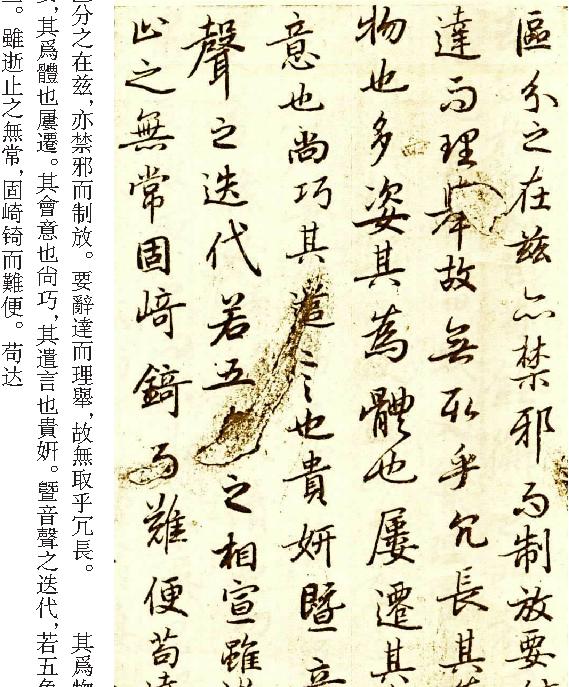 區分之在兹亦禁邪而制放要
達而理舉故無取乎冗長其
物也多姿其為體也屢遷其
意也尚巧其遣言也貴妍暨音
聲之迭代若五色之相宣雖
止之無常固崎錡而難便苟達
分之在兹,亦禁邪而制放。 要辭達而理舉,故無取乎冗長。 其爲物
,其爲體也屢遷。其會意也尙巧,其遣言也貴妍。曁音聲之迭代,若五色
。雖逝止之無常,固崎锜而難便。苟达